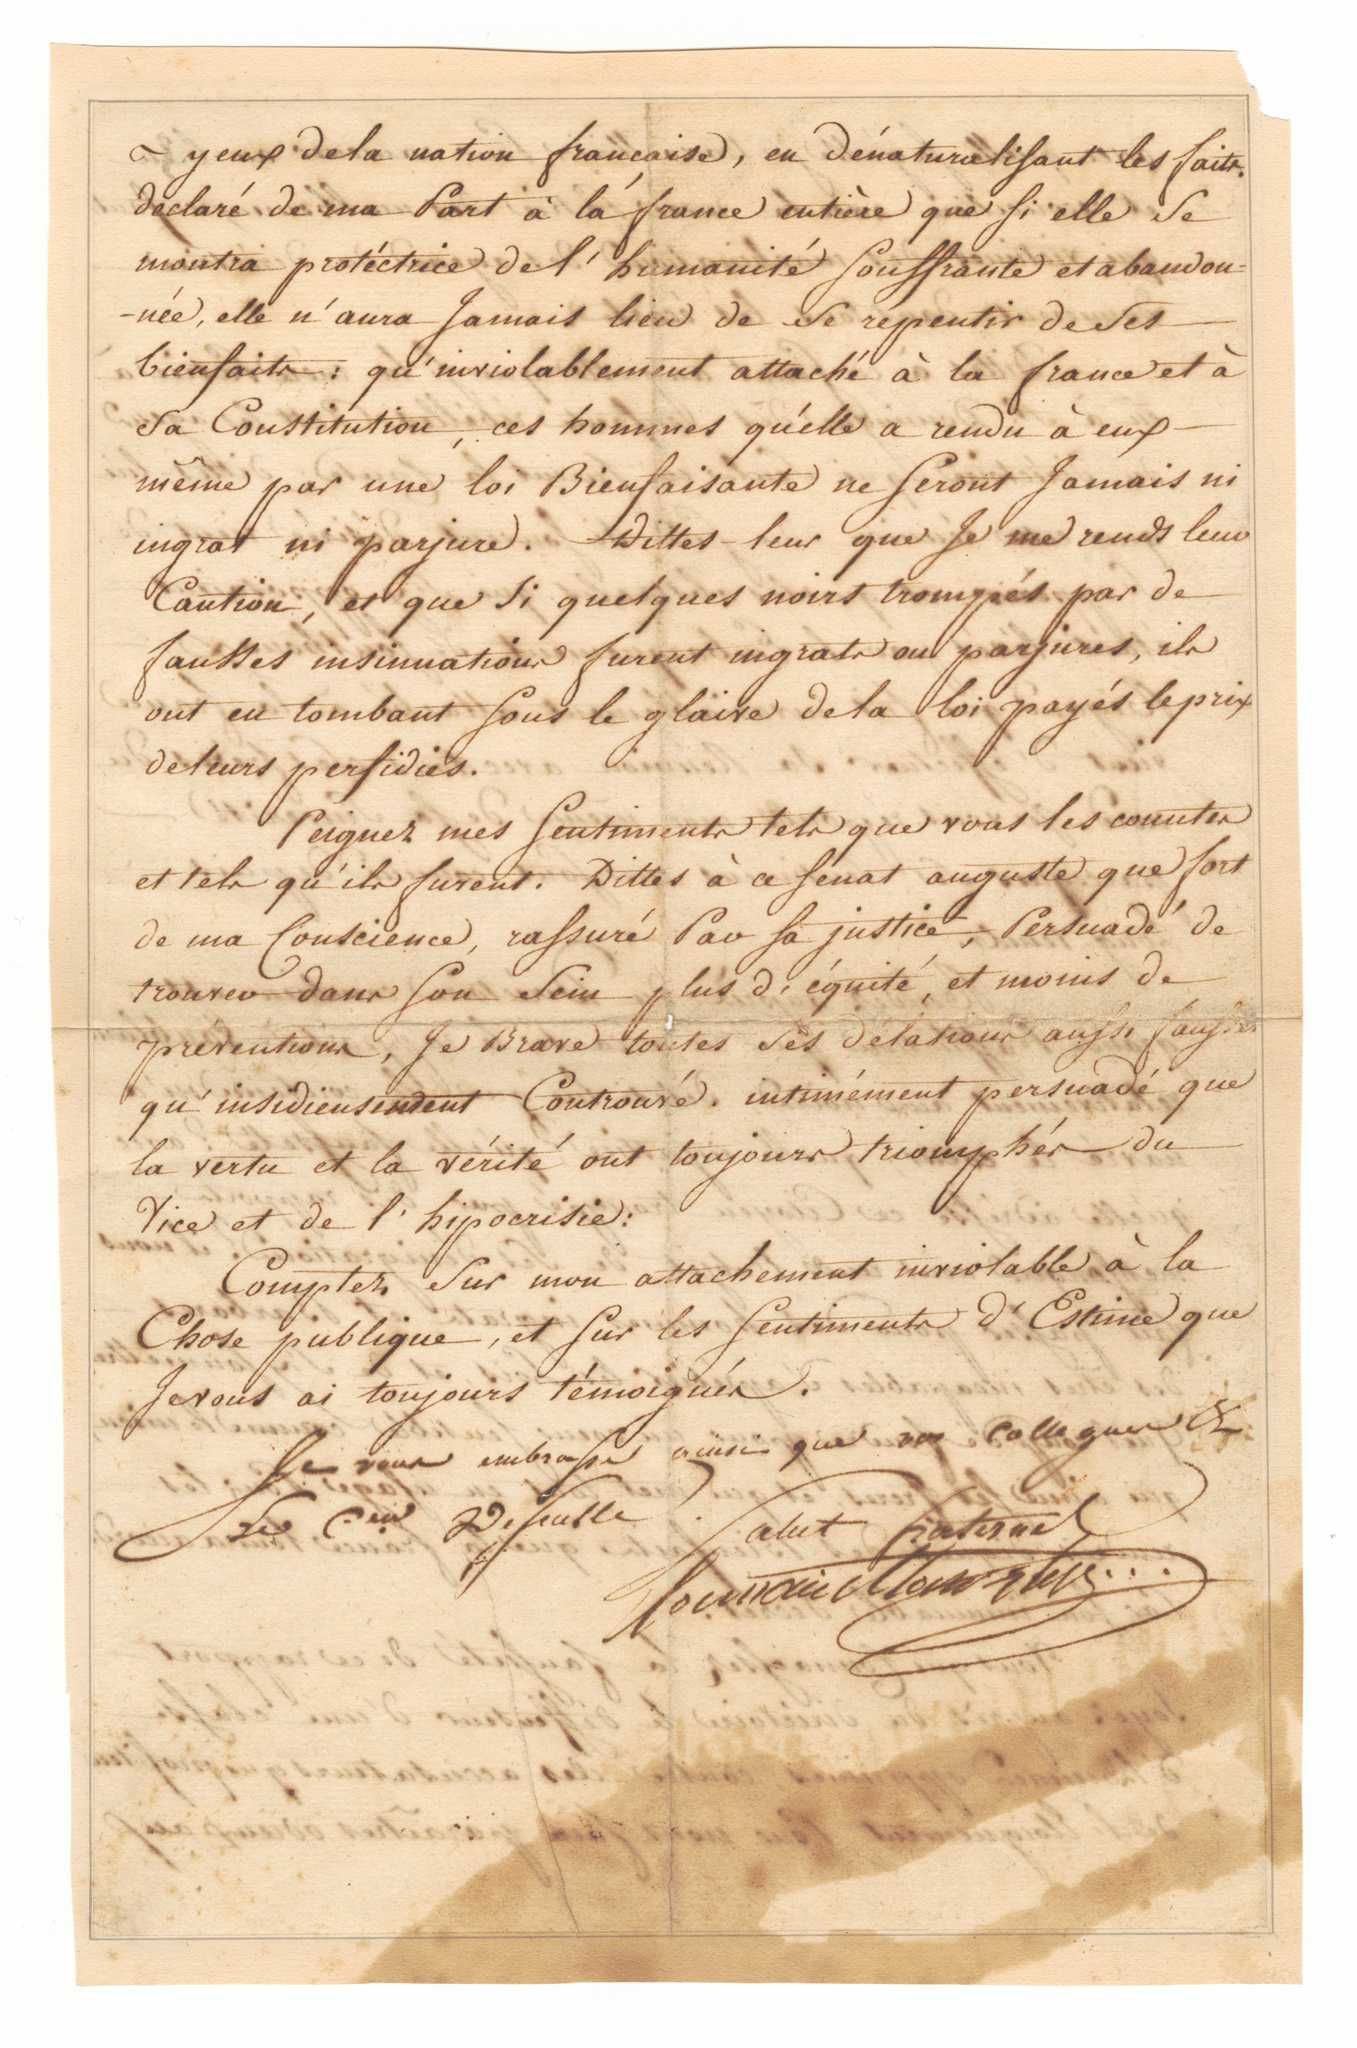 yeux de la nation française, en dénaturalisant les faits.
declaré de ma Part à la france entière que si elle se
montra protéctrice de l'humanité souffrante et abandon=
-née, elle n'aura Jamais lieu de se repentir de ses
bienfaits: qu'inviolablement attaché à la france et à
sa Constitution, ces hommes qu'elle a rendu à eux-
même par une loi Bienfaisante ne seront Jamais ni
ingrat ni parjure. Dittes-leur que Je me rends leur
Caution, et que si quelques noirs trompés par de
fausses insinuations furent ingrats ou parjures, ils
ont en tombant sous le glaive de la loi payés le prix
de leurs perfidies.
Peignez mes sentiments tels que vous les connutes
et tels qu'ils furent. Dittes à ce senat auguste que fort
de ma Conscience, rassuré Par sa justice, Persuadé de
trouver dans son sein plus d'équité, et moins de
préventions, Je Brave toutes ses délations aussi fausses
qu'insidieusement Controuvé. intimément persuadé que
la vertu et la vérité ont toujours triomphés du
Vice et de l'hipocrisie:
Comptez sur mon attachement inviolable à la
Chose publique, et sur les sentiments d'Estime que
Je vous ai toujours témoignés.
Je vous embrasse ainsi que vos collegues &
Le Cen
Salut fraternel
Toussaint Louverture